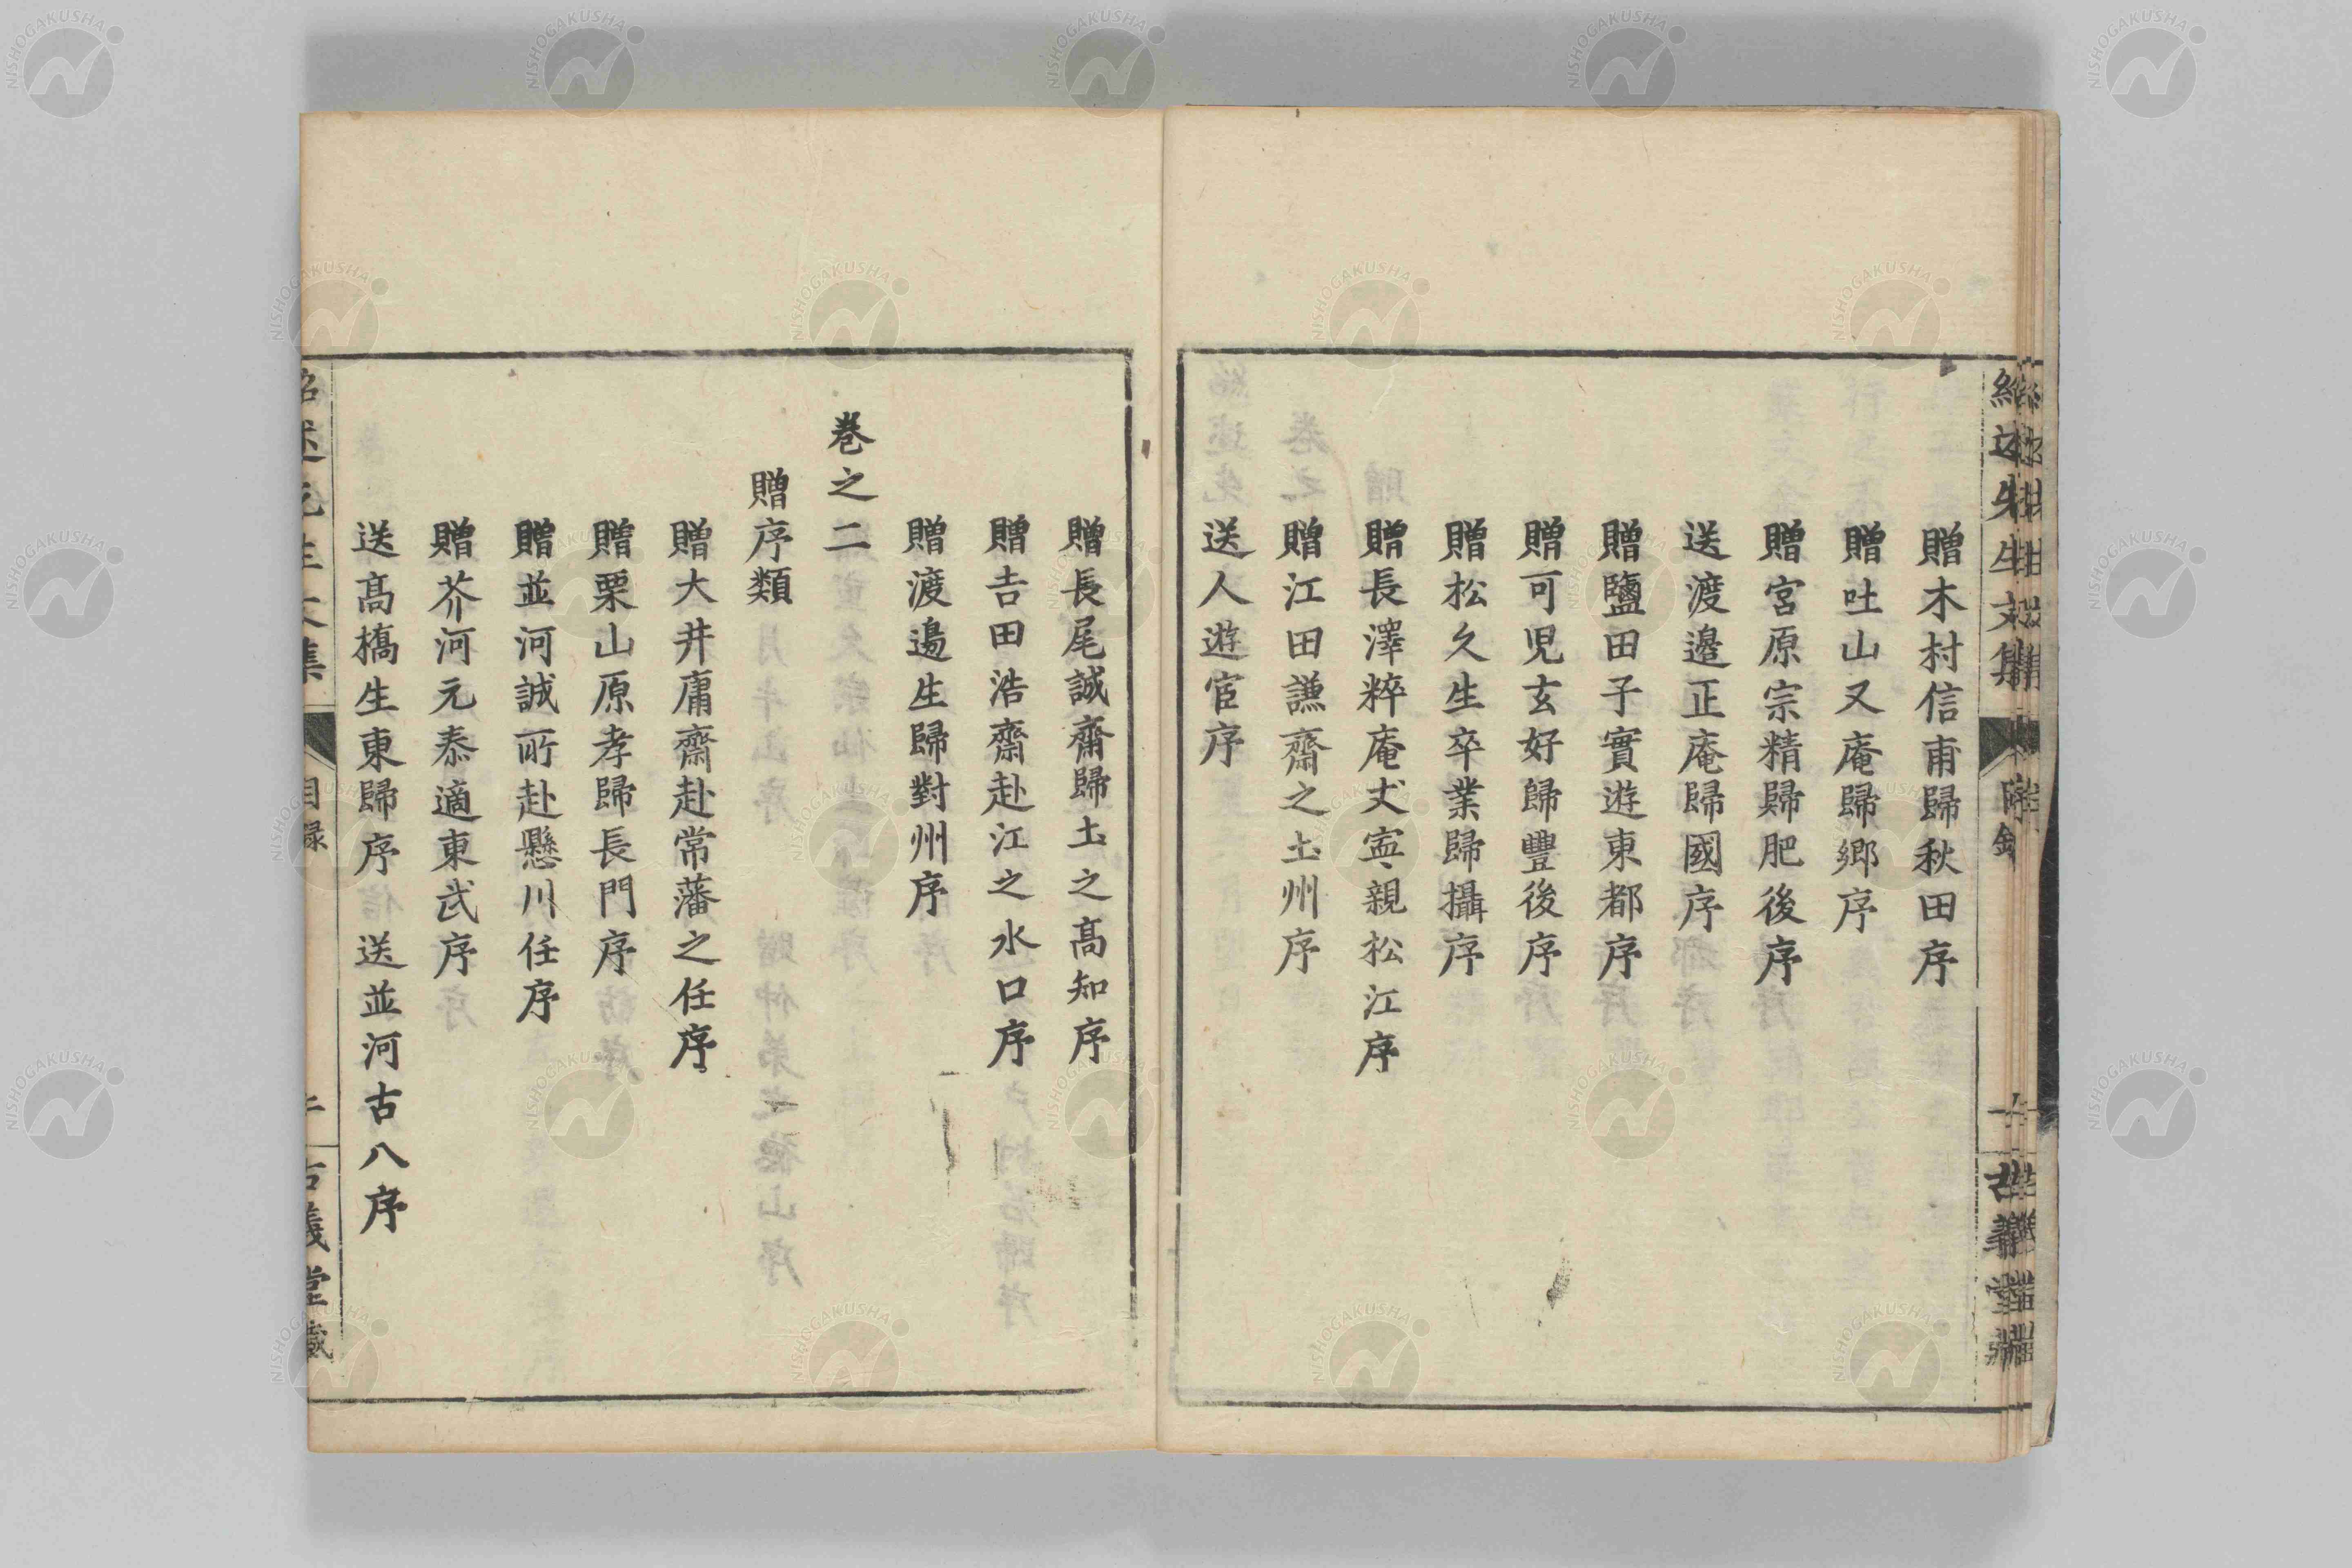 贈木村信甫歸秋田序
贈吐山又庵歸鄉序
贈宮原宗精歸肥後序
送渡邉正庵歸國序
贈鹽田子實遊東都序
贈可児玄好歸豐後序
贈松久生卒業歸攝序
贈長澤粹庵丈寍親松江序
贈江田謙齋之土州序
送人遊宦序
贈長尾誠齋歸土之髙知序
贈吉田浩齋赴江之水口序
贈渡邊生歸對州序
巻之二
贈序類
贈大井庸齋赴常藩之任序
贈栗山原孝歸長門序
贈並河誠所赴懸川任序
贈芥河元泰適東武序
送髙橋生東歸序 送並河古八序
目録
古義堂藏
NISHOGAKUSHA